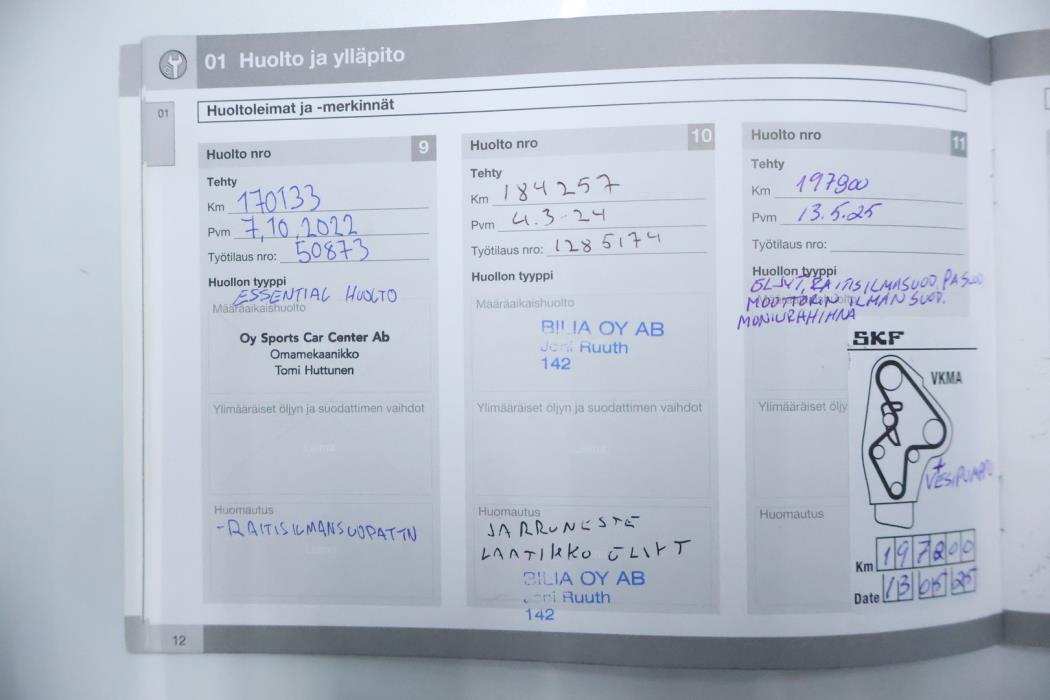 01 Huolto ja ylläpito
01
Huoltoleimat ja -merkinnät
Huolto nro 9
Tehty
Km 170133
Pvm 7,10,2022
Työtilaus nro: 50873
Huollon tyyppi
ESSENTIAL HUOLTO
Määräaikaishuolto
Oy Sports Car Center Ab
Omamekaanikko
Tomi Huttunen
Ylimääräiset öljyn ja suodattimen vaihdot
Leima
Huomautus
-RAITISILMANSUOPATTN
Huolto nro 10
Tehty
Km 184257
Pvm 4.3-24
Työtilaus nro: 1285174
Huollon tyyppi
Määräaikaishuolto
BILIA OY AB
Joni Ruuth
142
Ylimääräiset öljyn ja suodattimen vaihdot
Leima
Huomautus
JARRUNESTE
LAATIKKO ÖLJYT
BILIA OY AB
Joni Ruuth
142
Huolto nro 11
Tehty
Km
Pvm 13.5.25
Työtilaus nro:
Huollon tyyppi
ÖLJYT, RAITISILMASUOD, PASUOD
MOOTTORIN ILMANSUOD.
MONIURAHIHNA
Ylimääräiset öljy
Huomautus
SKF
VKMA
+
VESIPUMPPU
Km 197200
Date 13 05 25
12